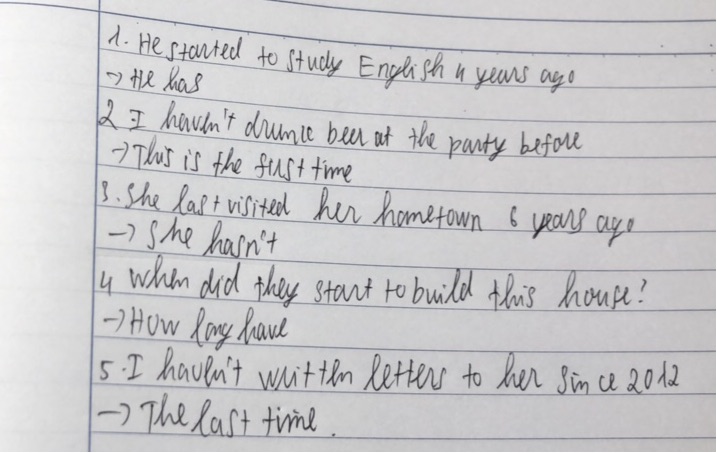 1. He started to study English 4 years ago
→ He has
2 I haven't drunk beer at the party before
→ This is the first time
3. She last visited her hometown 6 years ago
→ She hasn't
4 When did they start to build this house?
→ How long have
5. I haven't written letters to her since 2012
→ The last time.